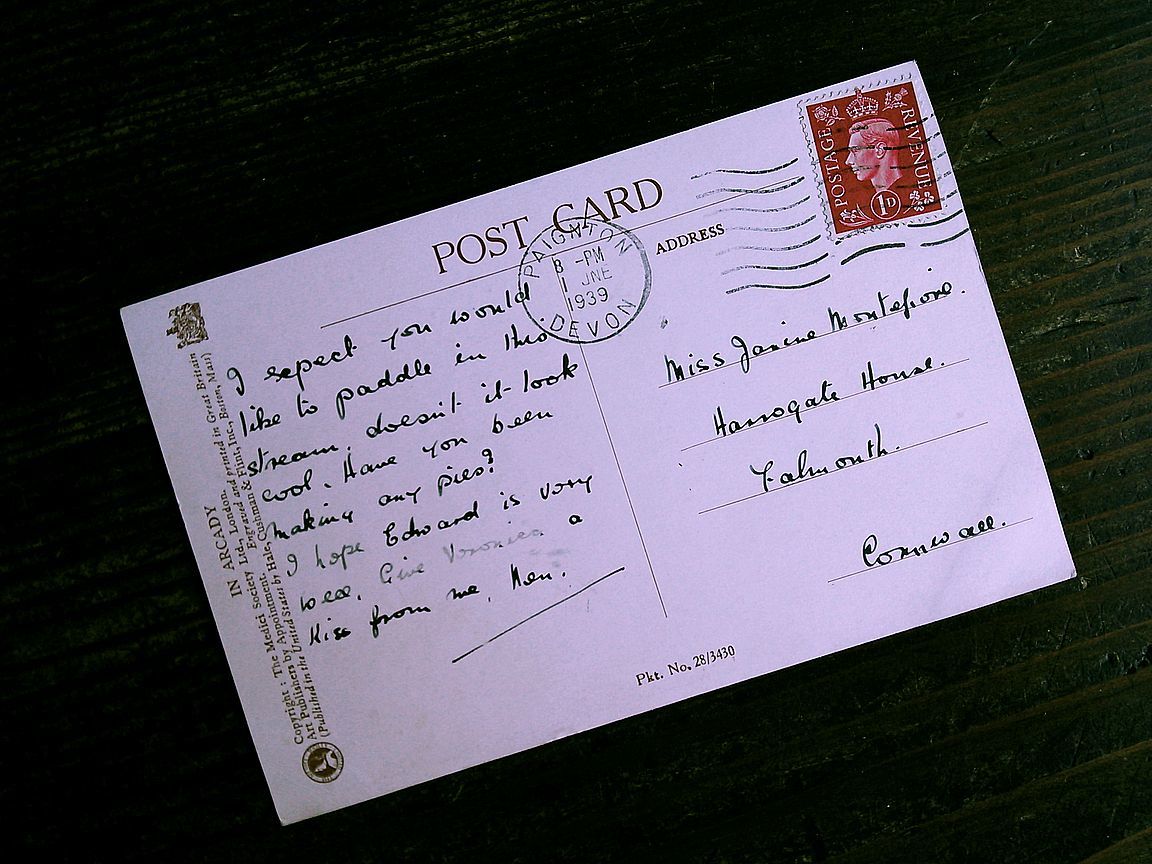 POST CARD
PAIGNTON
8 -PM
1 JNE
1939
DEVON
ADDRESS
POSTAGE
REVENUE
1D
I expect you would
like to paddle in this
stream, doesn't it look
cool. Have you been
making any pies?
I hope Edward is very
well. Give Veronica a
Kiss from me, Nen.
Miss Janine Montefiore.
Harrogate House.
Falmouth.
Cornwall.
IN ARCADY
Copyright : The Medici Society Ltd., London, and printed in Great Britain
Art Publishers by Appointment. Engraved and printed in Great Britain
(Published in the United States by Hale, Cushman & Flint, Inc., Boston, Mass)
Pkt. No. 28/3430